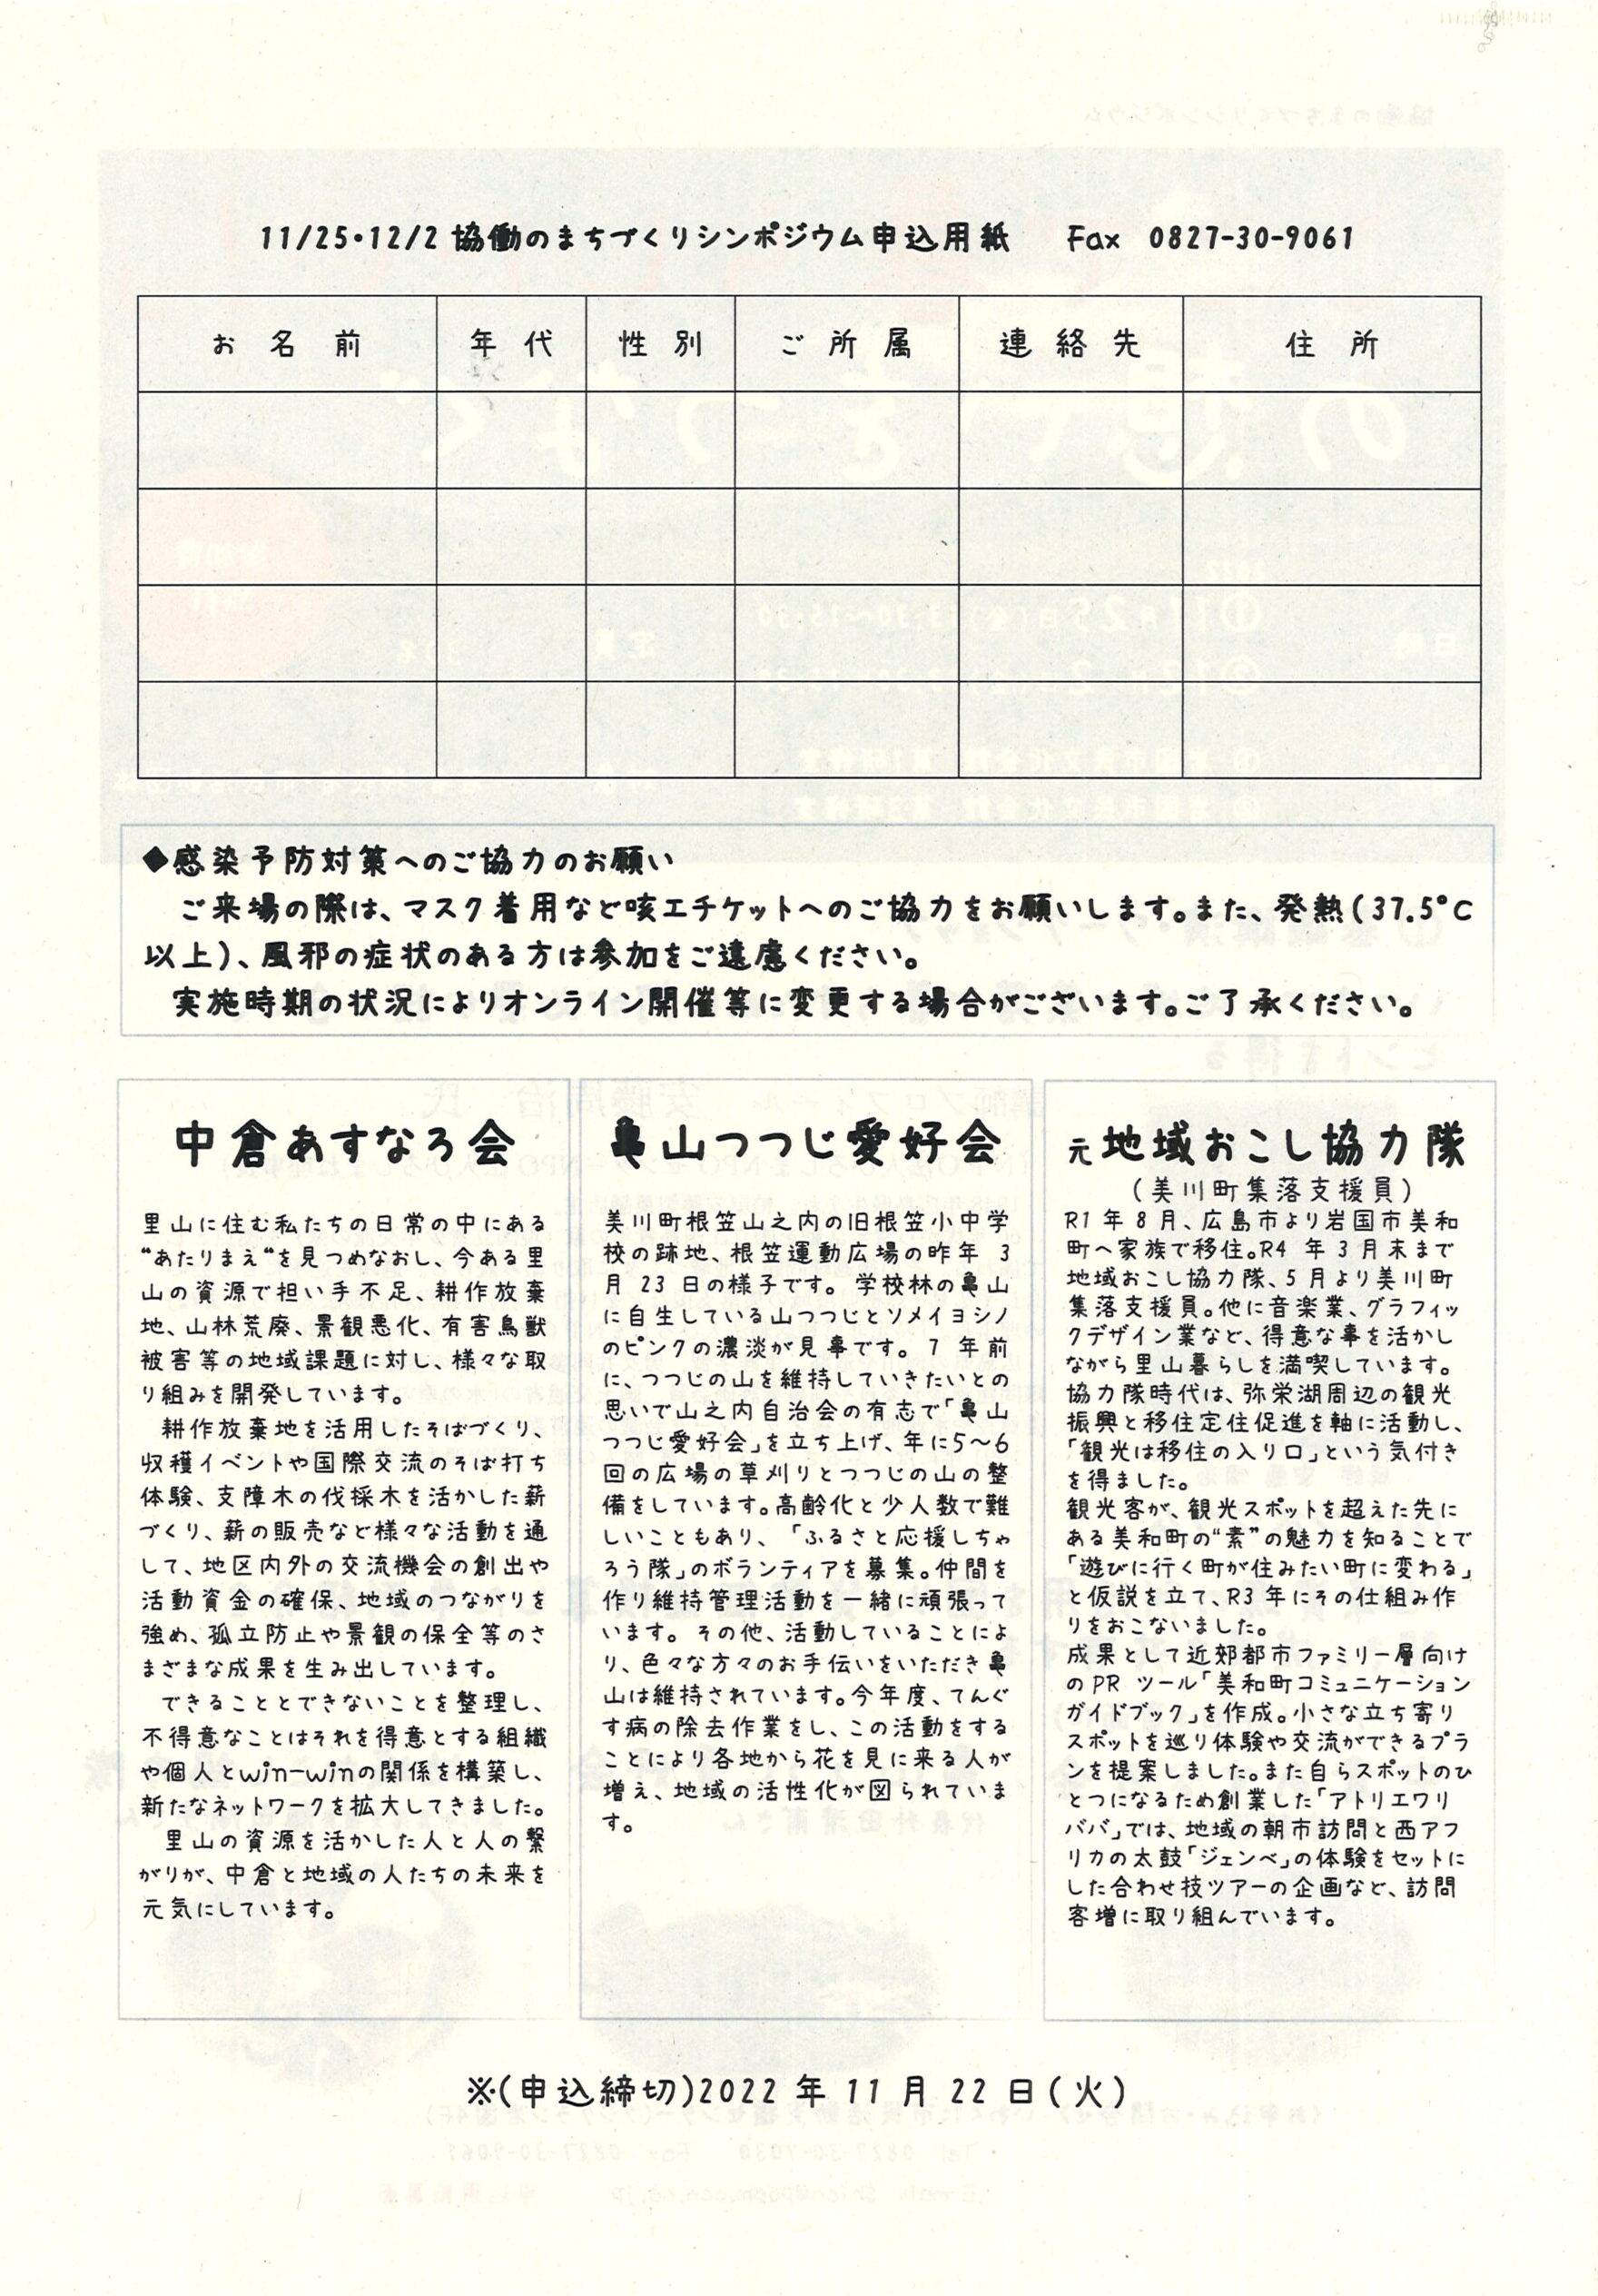 11/25・12/2 協働のまちづくりシンポジウム申込用紙　Fax　0827-30-9061
お名前　年代　性別　ご所属　連絡先　住所
◆感染予防対策へのご協力のお願い
ご来場の際は、マスク着用など咳エチケットへのご協力をお願いします。また、発熱(37.5°C
以上)、風邪の症状のある方は参加をご遠慮ください。
実施時期の状況によりオンライン開催等に変更する場合がございます。ご了承ください。
中倉あすなろ会
里山に住む私たちの日常の中にある
“あたりまえ“を見つめなおし、今ある里
山の資源で担い手不足、耕作放棄
地、山林荒廃、景観悪化、有害鳥獣
被害等の地域課題に対し、様々な取
り組みを開発しています。
耕作放棄地を活用したそばづくり、
収穫イベントや国際交流のそば打ち
体験、支障木の伐採木を活かした薪
づくり、薪の販売など様々な活動を通
して、地区内外の交流機会の創出や
活動資金の確保、地域のつながりを
強め、孤立防止や景観の保全等のさ
まざまな成果を生み出しています。
できることとできないことを整理し、
不得意なことはそれを得意とする組織
や個人とwin-winの関係を構築し、
新たなネットワークを拡大してきました。
里山の資源を活かした人と人の繋
がりが、中倉と地域の人たちの未来を
元気にしています。
亀山つつじ愛好会
美川町根笠山之内の旧根笠小中学
校の跡地、根笠運動広場の昨年 3
月 23 日の様子です。学校林の亀山
に自生している山つつじとソメイヨシノ
のピンクの濃淡が見事です。7 年前
に、つつじの山を維持していきたいとの
思いで山之内自治会の有志で「亀山
つつじ愛好会」を立ち上げ、年に5～6
回の広場の草刈りとつつじの山の整
備をしています。高齢化と少人数で難
しいこともあり、「ふるさと応援しちゃ
ろう隊」のボランティアを募集。仲間を
作り維持管理活動を一緒に頑張って
います。その他、活動していることによ
り、色々な方々のお手伝いをいただき亀
山は維持されています。今年度、てんぐ
す病の除去作業をし、この活動をする
ことにより各地から花を見に来る人が
増え、地域の活性化が図られていま
す。
元地域おこし協力隊
(美川町集落支援員)
R1 年 8 月、広島市より岩国市美和
町へ家族で移住。R4 年 3 月末まで
地域おこし協力隊、5 月より美川町
集落支援員。他に音楽業、グラフィッ
クデザイン業など、得意な事を活かし
ながら里山暮らしを満喫しています。
協力隊時代は、弥栄湖周辺の観光
振興と移住定住促進を軸に活動し、
「観光は移住の入り口」という気付き
を得ました。
観光客が、観光スポットを超えた先に
ある美和町の“素”の魅力を知ることで
「遊びに行く町が住みたい町に変わる」
と仮説を立て、R3 年にその仕組み作
りをおこないました。
成果として近郊都市ファミリー層向け
のPR ツール「美和町コミュニケーション
ガイドブック」を作成。小さな立ち寄り
スポットを巡り体験や交流ができるプラ
ンを提案しました。また自らスポットのひ
とつになるため創業した「アトリエワリ
ババ」では、地域の朝市訪問と西アフ
リカの太鼓「ジェンベ」の体験をセットに
した合わせ技ツアーの企画など、訪問
客増に取り組んでいます。
※(申込締切)2022 年 11 月 22 日(火)